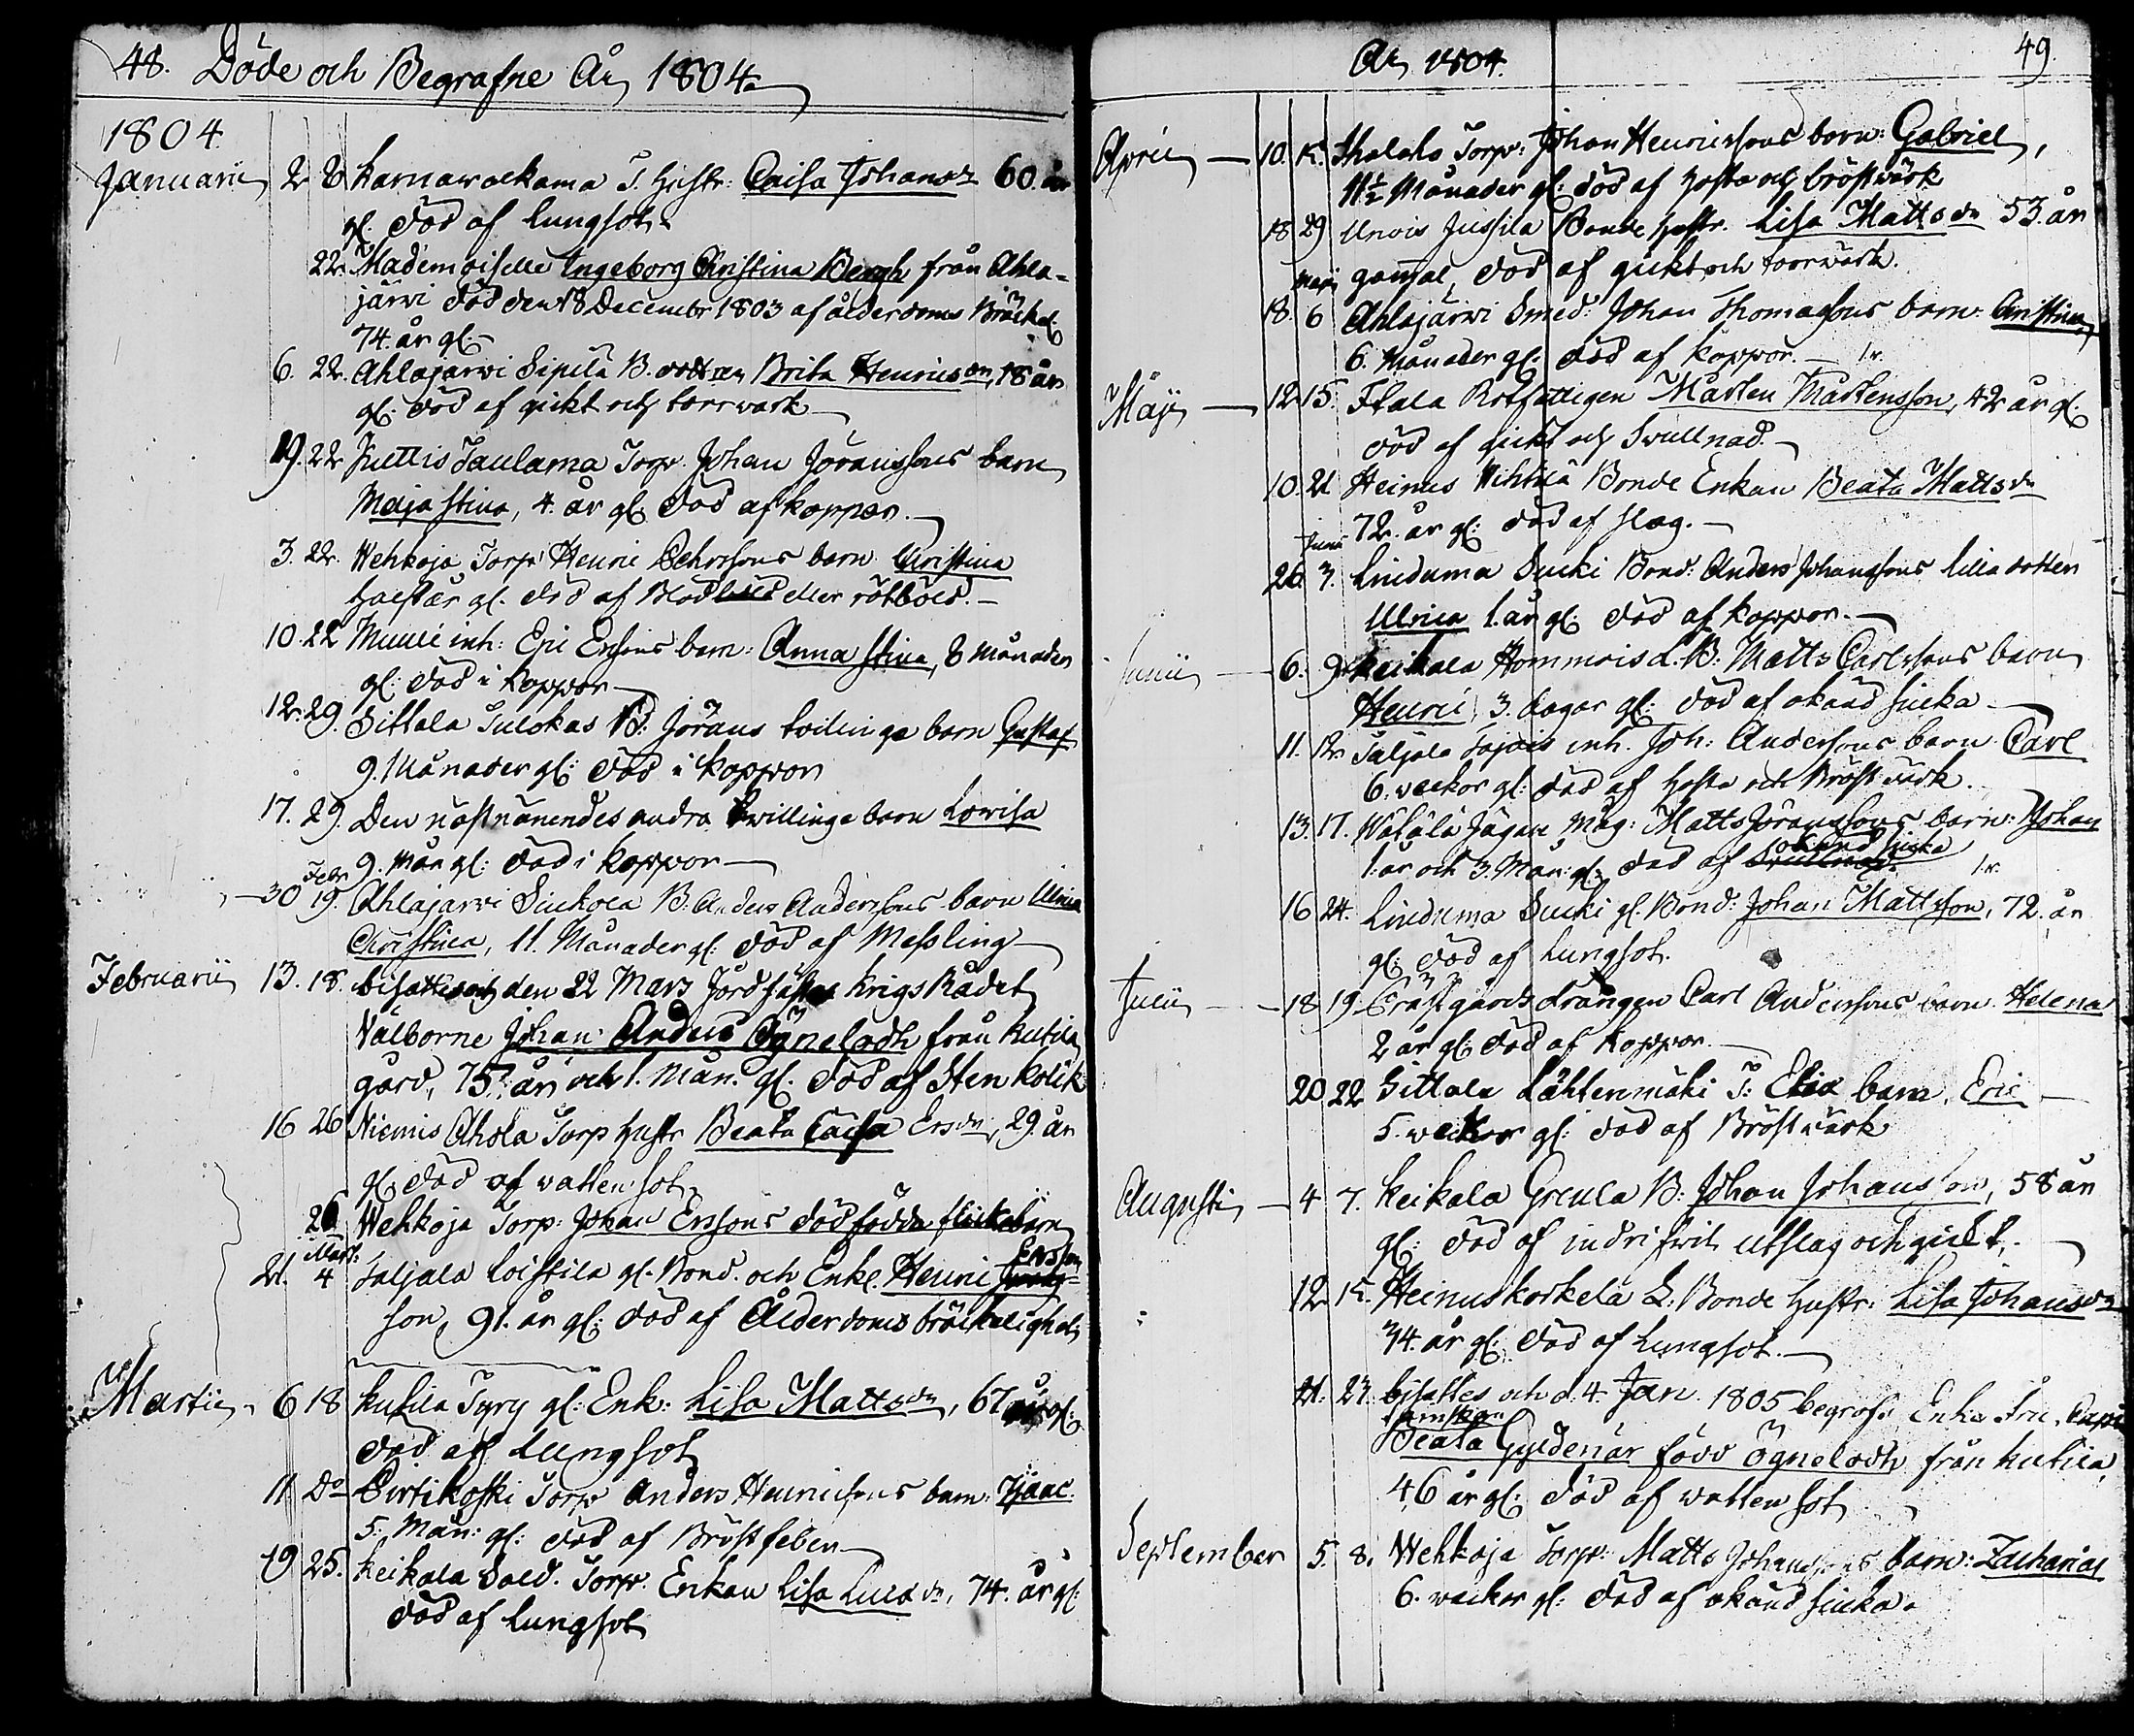 48. Döde och Begrafne År 1804
1804
Januarii 2 8 Karnarvakama T. Hustr: Caisa Johansdr 60. år
gl. död af Lungsot.
22. Mademoiselle Ingeborg Christina Bergh från Ahla-
järwi död den 18 Decembr 1803 af ålderdoms Bräckel
74. år gl.
6. 22. Ahlajärwi Sipilä B. dottren Brita Henricsdr, 18 år
gl: död af gickt och torrwärk
19. 22 Juttis Taulama Torp. Johan Göranssons barn
Maja Stina, 4. år gl. död af koppor.
3. 22. Wehkoja Torp: Henric barn Christina
half år gl. död af eller rötböld.
10. 22 inh: Eric Erssons barn: Anna Stina, 8 månader
gl: död i koppor
12. 29. Sittala Tulokas B: Görans twillinge barn Gustaf
9. Månader gl: död i koppor
17. 29. Den näst nämndes andra twillinge barn Lowisa
9. Mån gl: död i koppor
Febr
30 19. Ahlajärwi B. Anders Anderssons barn Ulrica
Christina, 11. Månader gl: död af Messling
Februarii 13. 18. bisattes och den 22 Mars Jordfästes Krigs Rådet
Välborne Johan Anders Ögnelodh från Kutila
gård, 75. år och 1. Mån. gl. död af Sten Kolik
16 26 Niemis Ahola Torp Hustr Beata Caisa Ersdr, 29. år
gl. död af watten sot.
26 Wehkoja Torp: Johan Erssons dödfödda flickebarn
Mart: Ersson
21. 4 Taljala Loistila gl. Bond. och Enkl. Henric
son, 91. år gl: död af Ålderdoms bräckelighet
Martii 6 18 Kutila Tyry gl: Enk: Lisa Mattsdr, 67 år gl:
död af Lungsot
11 Do Pirtikoski Torp Anders Henricssons barn: Isaac
5. Mån: gl: död af Bröst feber
19 25. Keikala Sold. Torp. Enkan Lisa dr, 74. år gl:
död af Lungsot
År 1804. 49.
April 10. 15. Thalaho Torp: Johan Henricssons barn: Gabriel,
11½ Månader gl: död af hosta och bröstwärk
18 29 Urvois Jussila Bonde Hustr. Lisa Mattsdr 53. år
Maji gammal, död af gickt och torrwärk.
18. 6 Ahlajärwi Smed: Johan Thomassons barn: Christina
6. Månader gl: död af koppor.
Maji 12 15. Itala Rotfattigen Mårten Mårtensson, 42 år gl.
död af gickt och Swullnad.
10. 21 Heinus Wihtiä Bonde Enkan Beata Mattsdr
72. år gl: död af slag.
Junii
26 3. Linduma Sucki Bond: Anders Johanssons lilla dotter
Ulrica 1. år gl: död af koppor.
Junii 6. 9 Keikala Hommois L. B: Matts Carlssons barn
Henric, 3. dagar gl: död af okänd siuka
11. 12 Taljala inh. Joh: Anderssons barn Carl
6. weckor gl: död af hosta och Bröstwärk.
13. 17. Wälälä Jägare Måg: Matts Jöranssons barn: Johan
okänd siuka
1. år och 3. Mån: gl: död af
16 24. Linduma Sucki gl. Bond: Johan Mattsson, 72. år
gl: död af Lungsot.
Julii 18 19 Prästgårds drängen Carl Anderssons barn Helena
2 år gl. död af koppor.
20 22 Sittala Lähtenmäki T: barn. Eric
5. weckor gl: död af Bröstwärk
Augusti 4 7. Keikala Greula B: Johan Johansson, 58 år
gl: död af utslag och gickt.
12 15. Heinus Korkela L: Bonde Hustr: Lisa Johansdr
34. år gl. död af Lungsot.
21. 23. bisattes och d. 4. Jan 1805 begrofs Enke Fru
Beata Gyldenär född Ögnelodh från Kutila
46 år gl: död af watten sot
September 5. 8. Wehkoja Torp: Matts Johanssons barn: Zacharias
6. weckor gl: död af okänd siuka.